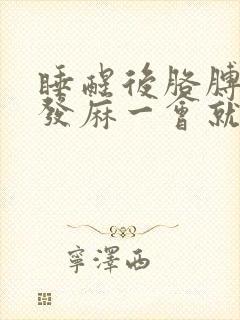 睡醒後胳膊
發麻一會就
寧澤西